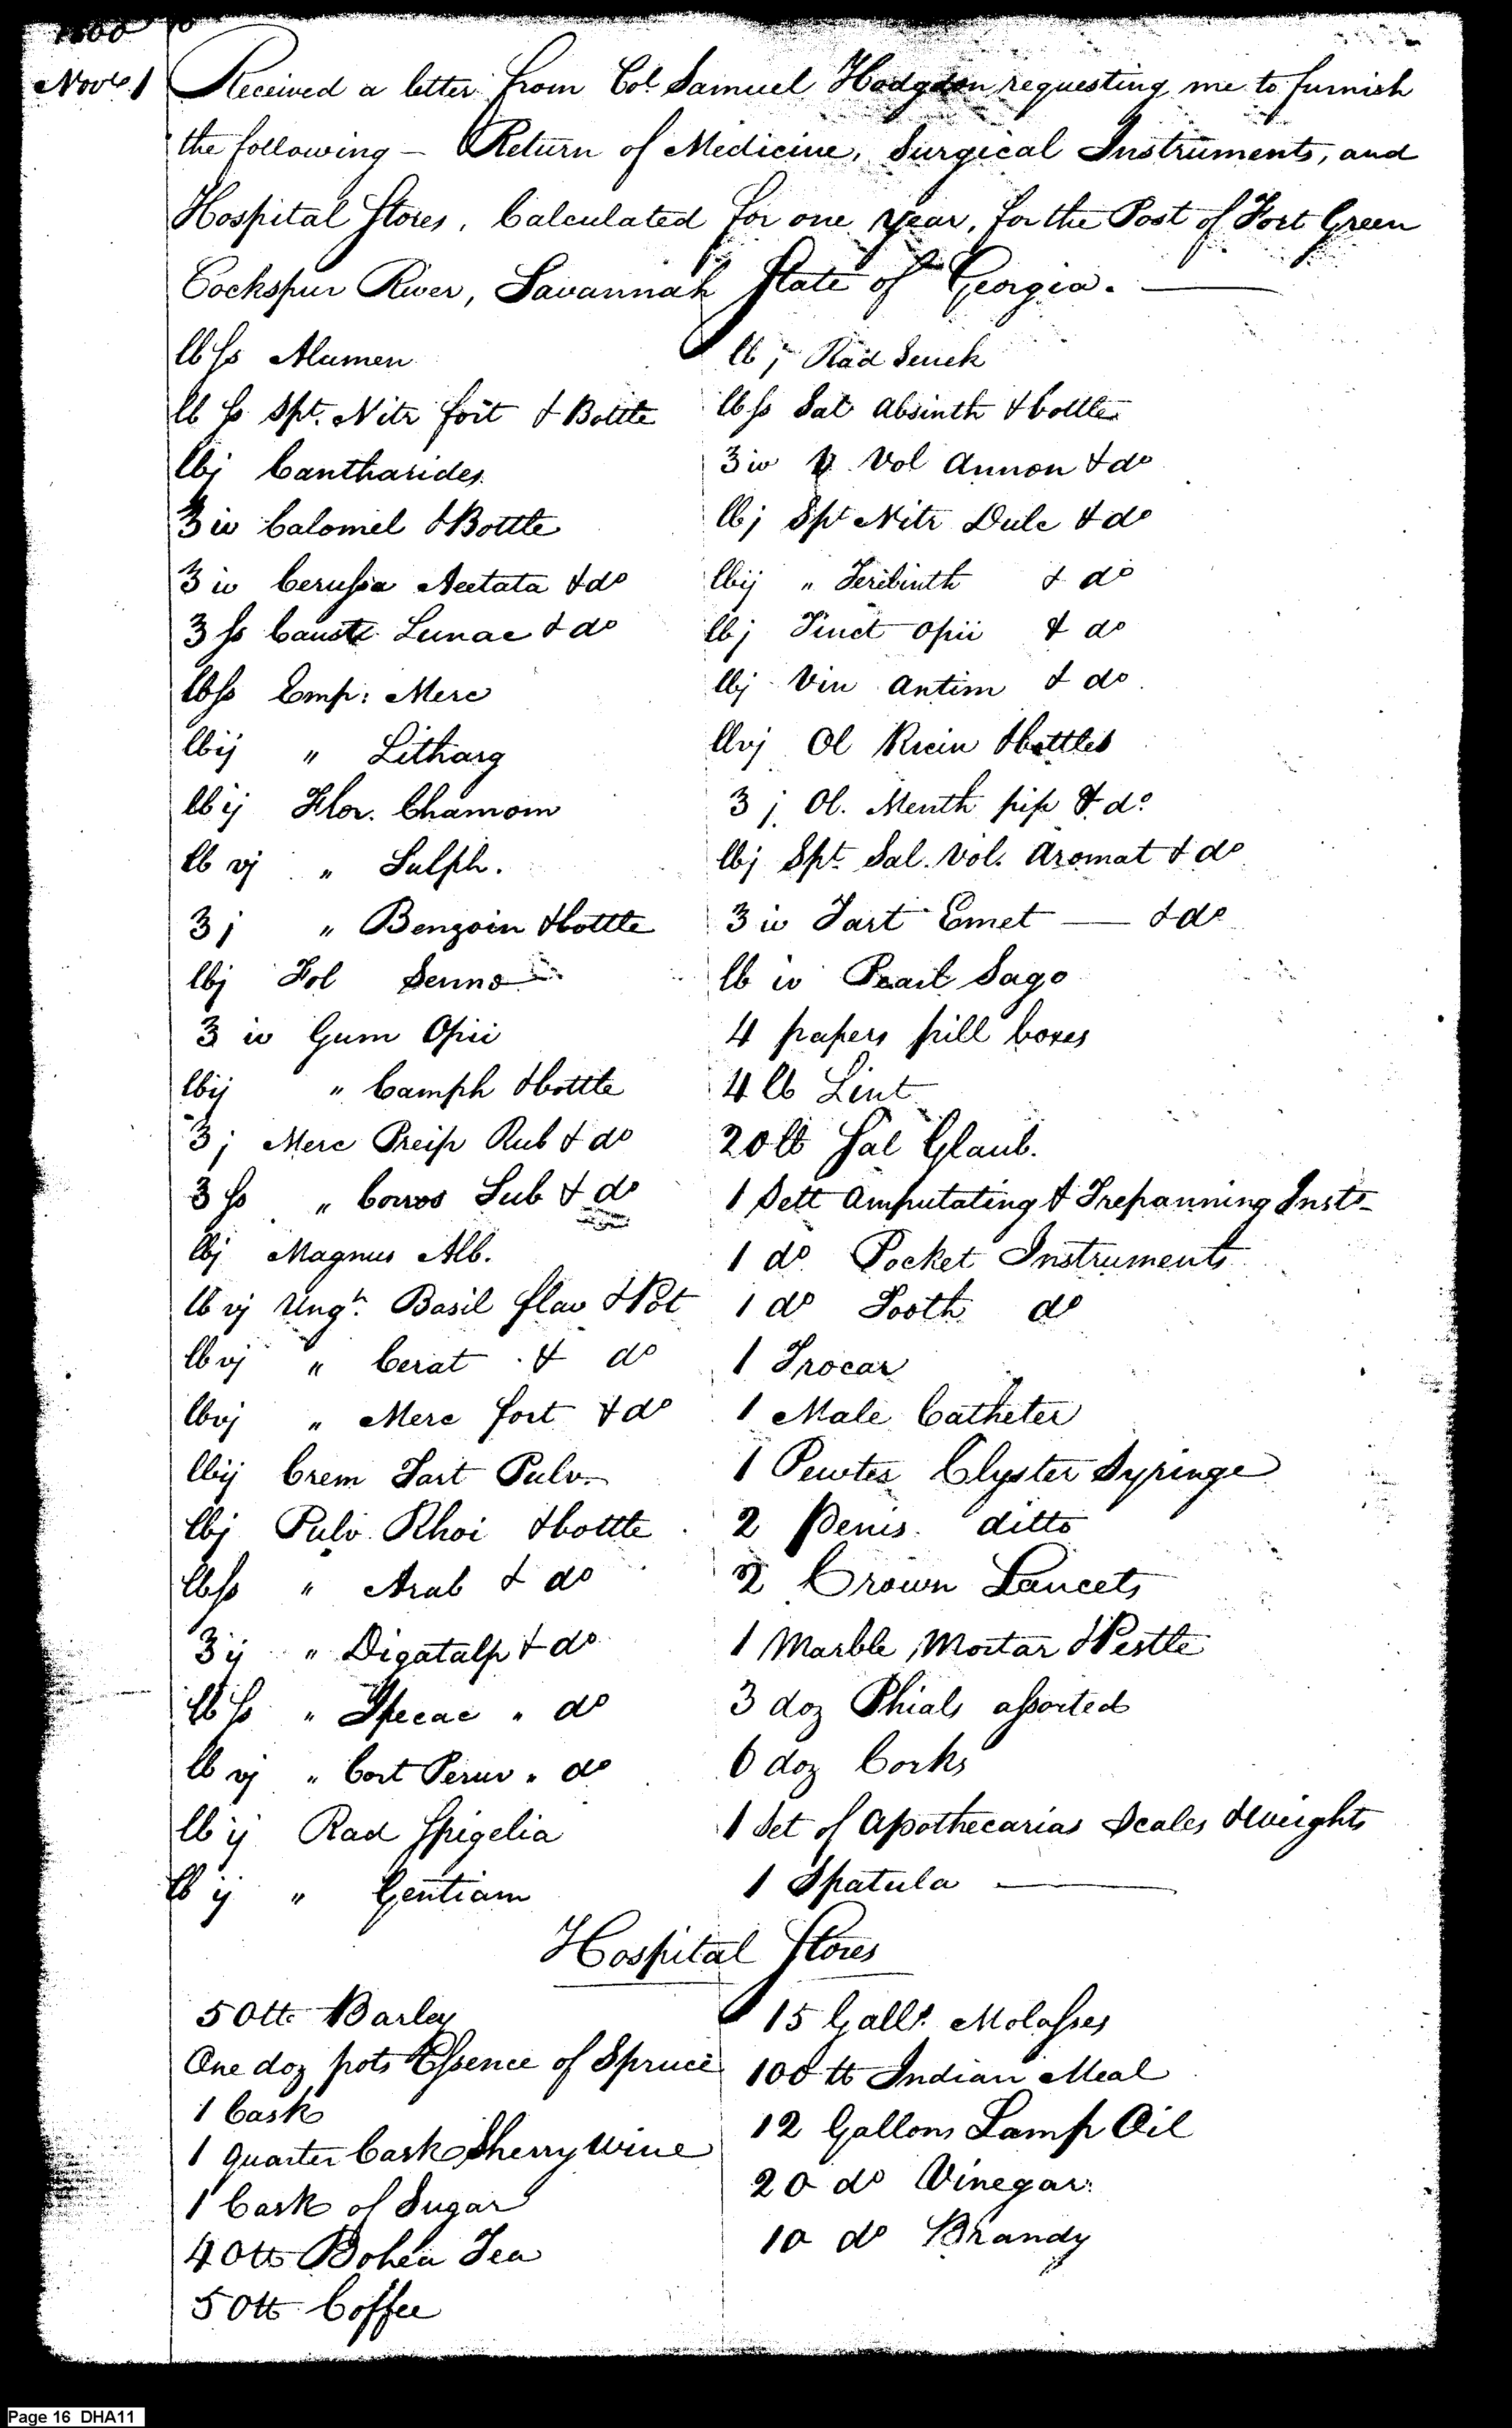 1800
Novr. 1 Received a letter from Col Samuel Hodgdon, requesting me to furnish
the following — Return of Medicine, Surgical Instruments, and
Hospital Stores, Calculated for one year, for the Post of Fort Green
Cockspur River, Savannah State of Georgia. —
lb ſs Alumen
lb ſs Spt. Nitr fort & Bottle
lbj Cantharides
℥ iv Calomel & Bottle
℥ iv Ceruſsa Acetata & do
℥ ſs Caustc Lunac & do
lbſs Emp: Merc
lbij " Litharg
lb ij Flor. Chamom
lb vj " Sulph.
℥ j " Benzoin & bottle
lbj Fol Senna
℥ iv Gum Opii
lbij " Camph & bottle
℥ j Merc Precip Rub & do
℥ ſs " Corros Sub & do
lbj Magnus Alb.
lb vj Ungt. Basil flav & Pot
lb vj " Cerat & do
lbvj " Merc fort & do
lbij Crem Tart Pulv.
lbj Pulv. Rhoi & bottle
lbſs " Arab & do
℥ ij " Digatalp & do
lb ſs " Ipecac " do
lb vj " Cort Peruv " do
lb ij Rad Spigelia
lb ij " Gentiam
lb j Rad Senek
lbſs Sal Absinth & bottle
℥ iv " Vol Ammon & do
lbj Spt Nitr Dulc & do
lbij " Teribinth & do
lbj Tinct opii & do
lbj Vin antim & do
lbvj Ol Ricin & bottles
℥ j Ol. Menth pip & do
lbj Spt. Sal. Vol. Aromat & do
℥ iv Tart Emet — & do
lb iv Pearl Sago
4 papers pill boxes
4 lb Lint
20 lb Sal Glaub.
1 Sett Amputating & Trepanning Insts
1 do Pocket Instruments
1 do Tooth do
1 Trocar
1 Male Catheter
1 Pewter Clyster Syringe
2 Penis ditto
2 Crown Lancets
1 Marble Mortar & Pestle
3 doz Phials aſsorted
6 doz Corks
1 Set of Apothecarias Scales & Weights
1 Spatula —
Hospital Stores
50 tt Barley
One doz pots Eſsence of Spruce
1 Cask
1 quarter Cask Sherry Wine
1 Cask of Sugar
40 tt Bohea Tea
50 tt Coffee
15 Galls. Molaſses
100 tt Indian Meal
12 Gallons Lamp Oil
20 do Vinegar
10 do Brandy
Page 16 DHA11